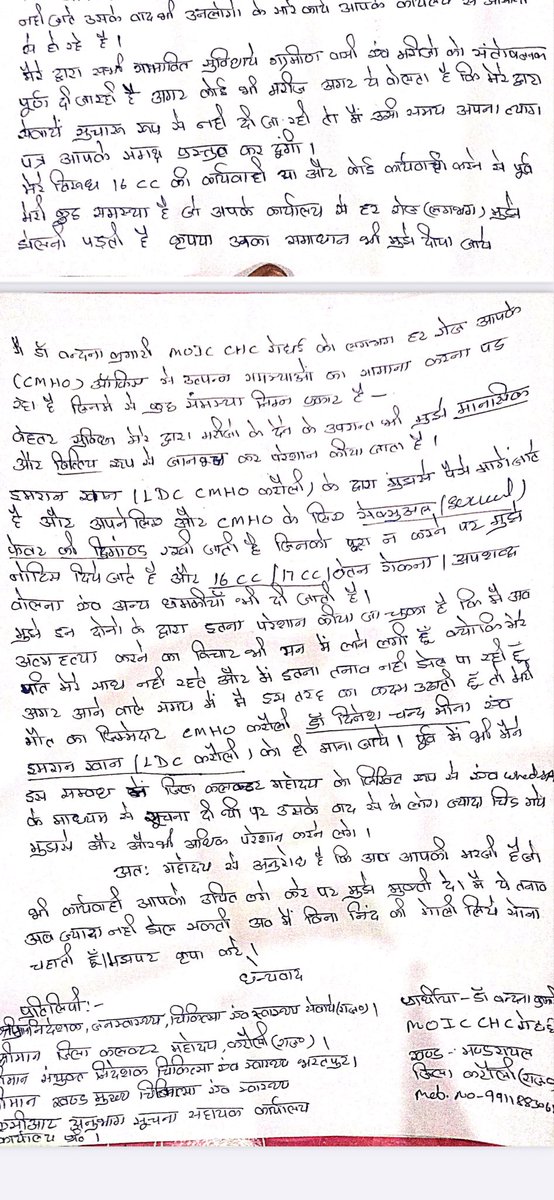 नहीं जाते उसके बाद भी उनलोगो के सारे कार्य आपके कार्यालय से आसानी
से हो रहे है।
मेरे द्वारा सभी सम्भावित सुविधाये ग्रामीण वासी एंव मरीजो को संतोषजनक
पूर्ण दी जारही है अगर कोई भी मरीज अगर ये बोलता है कि मेरे द्वारा
सेवायें सुचारू रूप से नही दी जा रही तो मैं उसी समय अपना त्याग
पत्र आपके समक्ष प्रस्तुत कर दूंगी।
मेरे विरूध 16 CC की कार्यवाही या और कोई कार्यवाही करने से पूर्व
मेरी कुछ समस्या है जो आपके कार्यालय से हर रोज (लगभग) मुझे
झेलनी पड़ती है कृपया उनका समाधान भी मुझे दीया जाये
मै डॉ वन्दना कुमारी MOIC CHC को लगभग हर रोज आपके
(CMHO) ऑफिस से उत्पन्न समस्याओ का सामना करना पड
रहा है जिनमे से कुछ समस्या निम्न प्रकार है -
बेहतर सुविधा मेरे द्वारा मरीजो के देने के उपरान्त भी मुझे मानसिक
और वित्तिय रूप से जानबूझ कर परेशान कीया जाता है।
इमरान खान (LDC CMHO करौली) के द्वारा मुझसे पैसे मांगे जाते
है और अपने लिए और CMHO के लिए सेक्सुअल (sexual)
फेवर की डिमांण्ड रखी जाती है जिनको पूरा न करने पर मुझे
नोटिस दिये जाते है और 16 CC / 17 CC / वेतन रोकना / अपशब्द
बोलना एंव अन्य धमकीयाँ भी दी जाती है।
मुझे इन दोनो के द्वारा इतना परेशान कीया जा चुका है कि मै अब
आत्महत्या करने का विचार भी मन में लाने लगी हूँ क्योकि मेरे
पति मेरे साथ नही रहते और में इतना तनाव नही झेल पा रही हूँ
अगर आने वाले समय में मै इस तरह का कदम उठाती हूँ तो मेरी
मौत का जिम्मेदार CMHO करौली डॉ दिनेश चन्द मीना एंव
इमरान खान (LDC करौली) को ही माना जाये। पूर्व में भी मैने
इस सम्बंध में जिला कलक्टर महोदय को लिखित रूप से एंव
के माध्यम से सूचना दी थी पर उसके बाद से ये लोग ज्यादा चिड गये
मुझसे और और भी अधिक परेशान करने लगे।
अतः महोदय से अनुरोध है कि अब आपकी मरजी है जो
भी कार्यवाही आपको उचित लगे करे पर मुझे मुक्ती दे। मै ये तनाव
अब ज्यादा नही झेल सकती अब मैं बिना निंद की गोली लिये सोना
चहाती हूँ। मुझपर कृपा करे।
धन्यवाद
प्रतिलिपी:-
निदेशक, जनस्वास्थ्य, चिकित्सा एंव स्वास्थ्य सेवाये (राज०)।
जिला कलक्टर महोदय, करौली (राज०)।
संयुक्त निदेशक चिकित्सा एंव स्वास्थ्य भरतपुर।
खण्ड मुख्य चिकित्सा एंव स्वास्थ्य
अनुभाग सूचना सहायक कार्यालय
प्रार्थीया - डॉ वन्दना
MOIC CHC
खण्ड - मण्डरायल
जिला करौली (राज०)
Mob. No-991188306